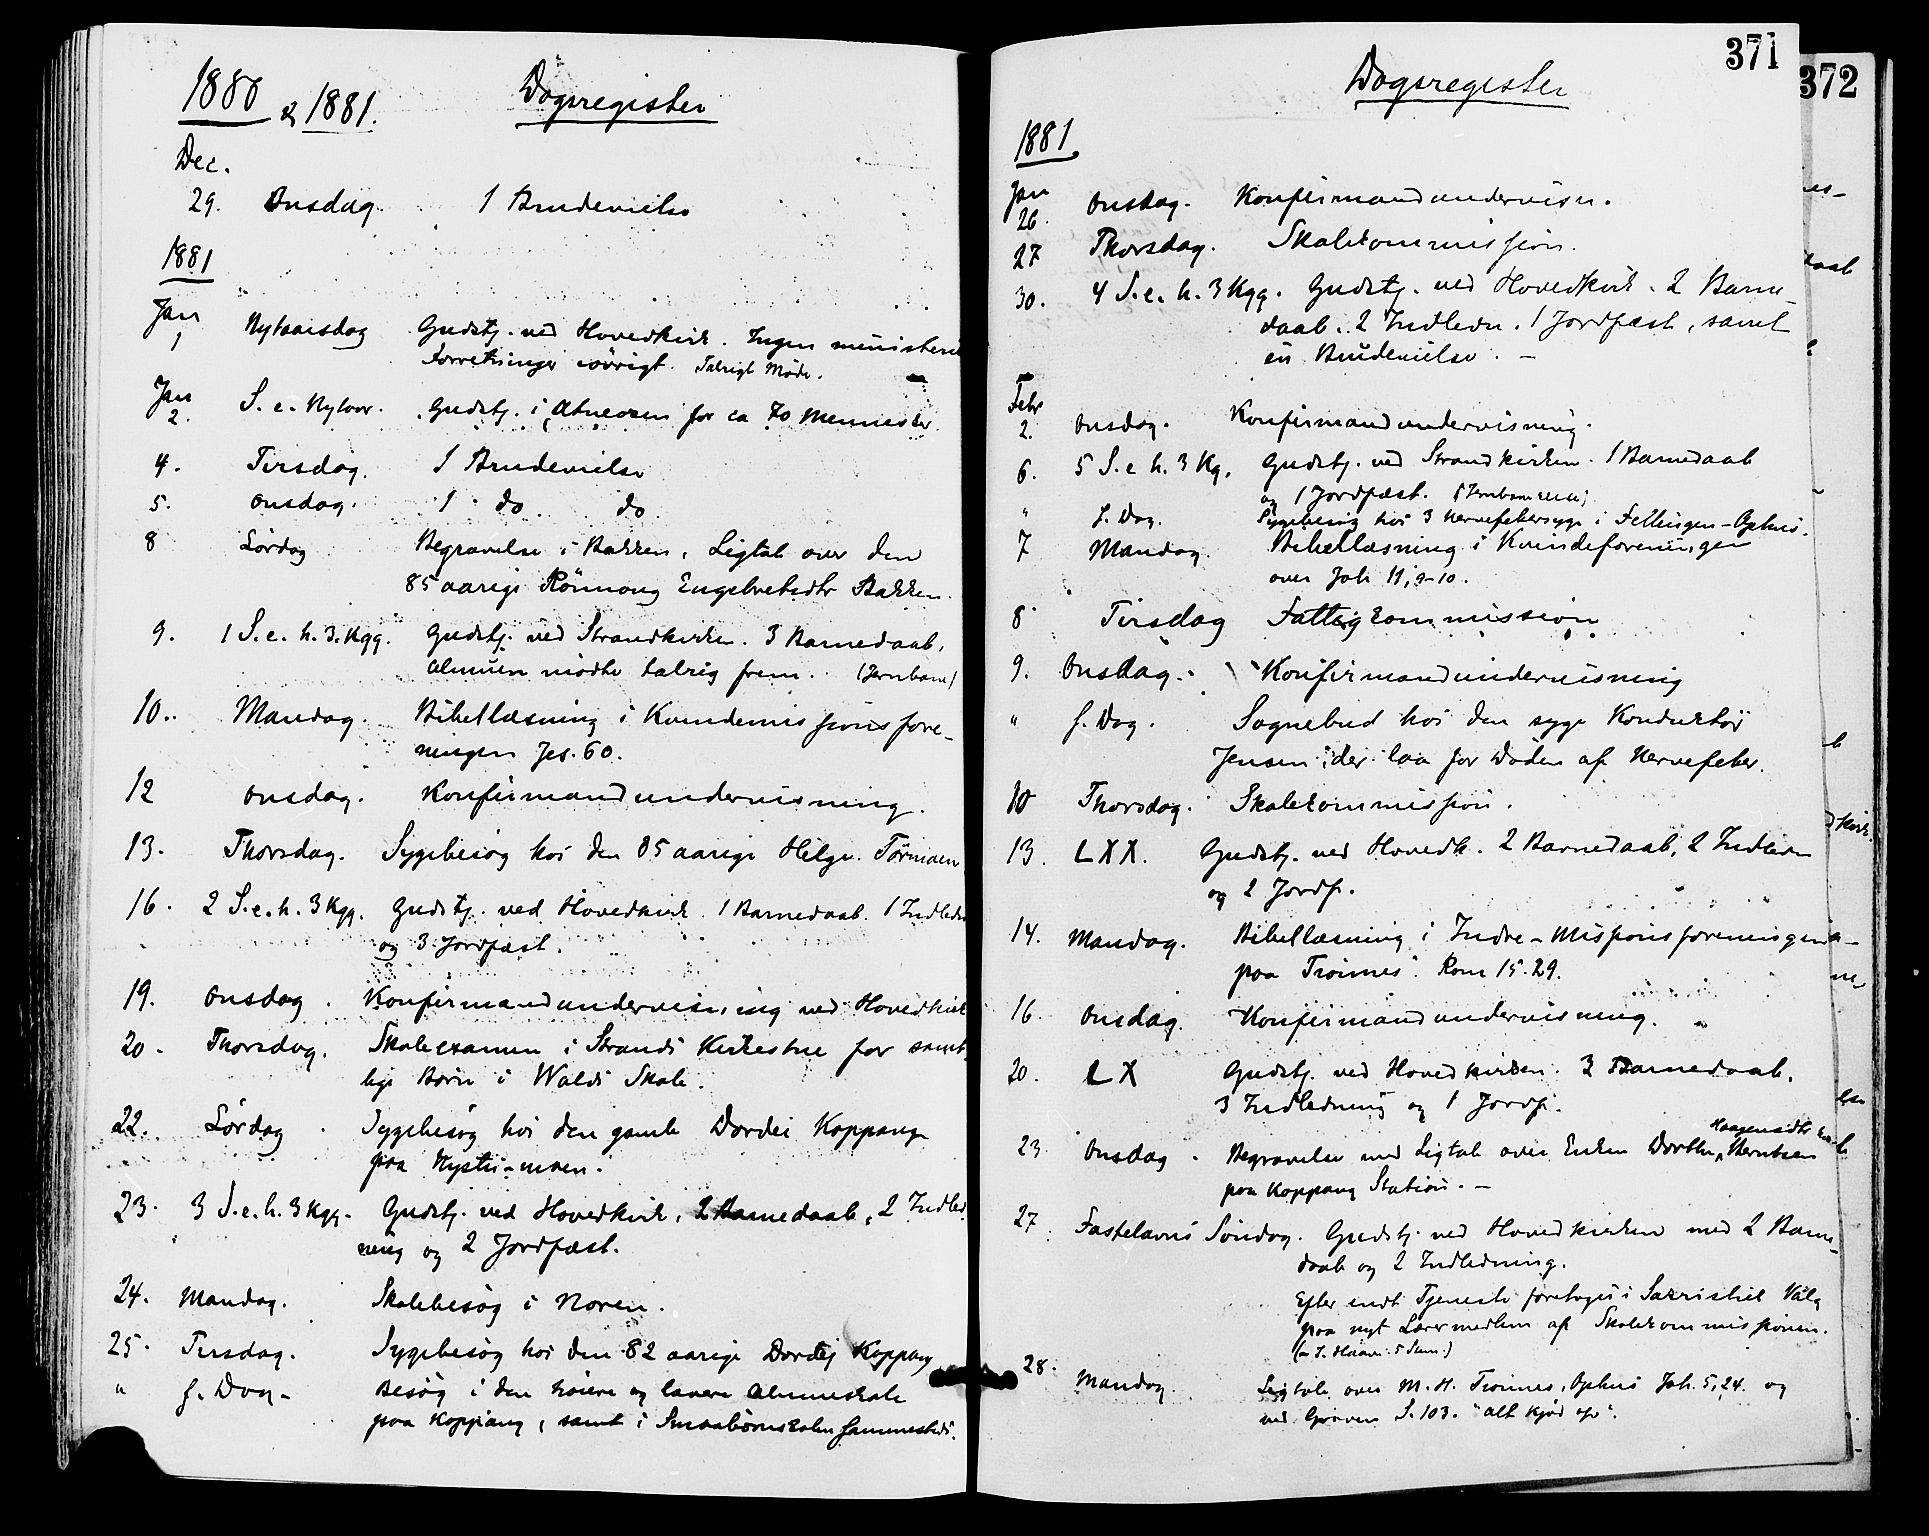 1880 & 1881. Dagsregister
Dec.
29. Onsdag. 1 Brudevielse
1881
Jan
1 Nytaarsdag Gudstj. ved Hovedkirk. Ingen ministeri
Forretninger iøvrigt. Talrigt Møde.
Jan
2. S. e. Nytaar. Gudstj. i Atneosen for ca 70 Mennesker.
4. Tirsdag. 1 Brudevielse
5. Onsdag. 1 do do
8 Lørdag Begravelse i Bakken. Ligtale over den
85 aarige Rönnoug Engebretsdtr Bakken.
9. 1 S. e. h. 3. Kgg. Gudstj. ved Strandkirken. 3 Barnedaab.
Almuen mødte talrig frem. (Jernbane)
10. Mandag. Bibellæsning i Kvindemissionsfore-
ningen Jes. 60.
12 Onsdag. Konfirmandundervisning.
13. Thorsdag. Sygebesøg hos den 85 aarige Helge Tørmoen
16. 2 S. e. h. 3 Kgg. Gudstj. ved Hovedkirk. 1 Barnedaab. 1 Indledn
og 3 Jordfæst.
19. Onsdag. Konfirmandundervisning ved Hovedkirk
20. Thorsdag. Skoleexamen i Strands Kirkestue for samt-
lige Børn i Walds Skole.
22. Lørdag Sygebesøg hos den gamle Dordei Koppang
paa Nystu-moen.
23. 3 S. e. h. 3 Kgg. Gudstj. ved Hovedkirk, 2 Barnedaab, 2 Indled
ning og 2 Jordfæst.
24. Mandag. Skolebesøg i Noren.
25. Tirsdag. Sygebesøg hos den 82 aarige Dordej Koppang
" f. Dag- Besøg i den høiere og lavere Almueskole
paa Koppang, samt i Smaabørnskolen sammesteds.
371
372
Dagsregister
1881.
Jan
26. Onsdag. Konfirmandundervisn.
27 Thorsdag. Skolekommission.
30. 4 S. e. h. 3 Kgg. Gudstj. ved Hovedkirk. 2 Barne-
daab. 2 Indledn. 1 Jordfæst, samt
en Brudevielse. –
Febr
2. Onsdag. Konfirmandundervisning.
6. 5 S. e h. 3 Kg. Gudstj. ved Strandkirken. 1 Barnedaab
og 1 Jordfæst.
" f. Dag. Sygebesøg hos 3 Nervefebersyge i Fellingen-Ophus.
7 Mandag. Bibellæsning i Kvindeforeningen
over Joh 11, 9-10.
8 Tirsdag Fattigkommission
9. Onsdag. Konfirmandundervisning
" f. Dag. Sognebud hos den syge Konduktør
Jensen, der laa for Døden af Nervefeber.
10 Thorsdag. Skolekommission.
13. LXX. Gudstj. ved Hovedk. 2 Barnedaab, 2 Indledn
og 2 Jordf.
14. Mandag. Bibellæsning i Indre-Missionsforeningen
paa Trønnes. Rom 15.29.
16. Onsdag. Konfirmandundervisning.
20. LX Gudstj. ved Hovedkirken. 3 Barnedaab.
3 Indledning og 1 Jordf.
Haagensdtr
23. Onsdag. Begravelse med Ligtale over Enken Dorthe Berntsen
paa Koppang Station. –
27 Fastelavns Søndag. Gudstj. ved Hovedkirken med 2 Barne-
daab og 2 Indledning.
Efter endt Tjeneste foretoges i Sakristiet Valg
paa nyt Lærermedlem af Skolekommissionen.
28. Mandag. Ligtale over M. H. Trønnes, Ophus Joh. 5,24. og
ved Graven S. 103. "Alt Kjød er".